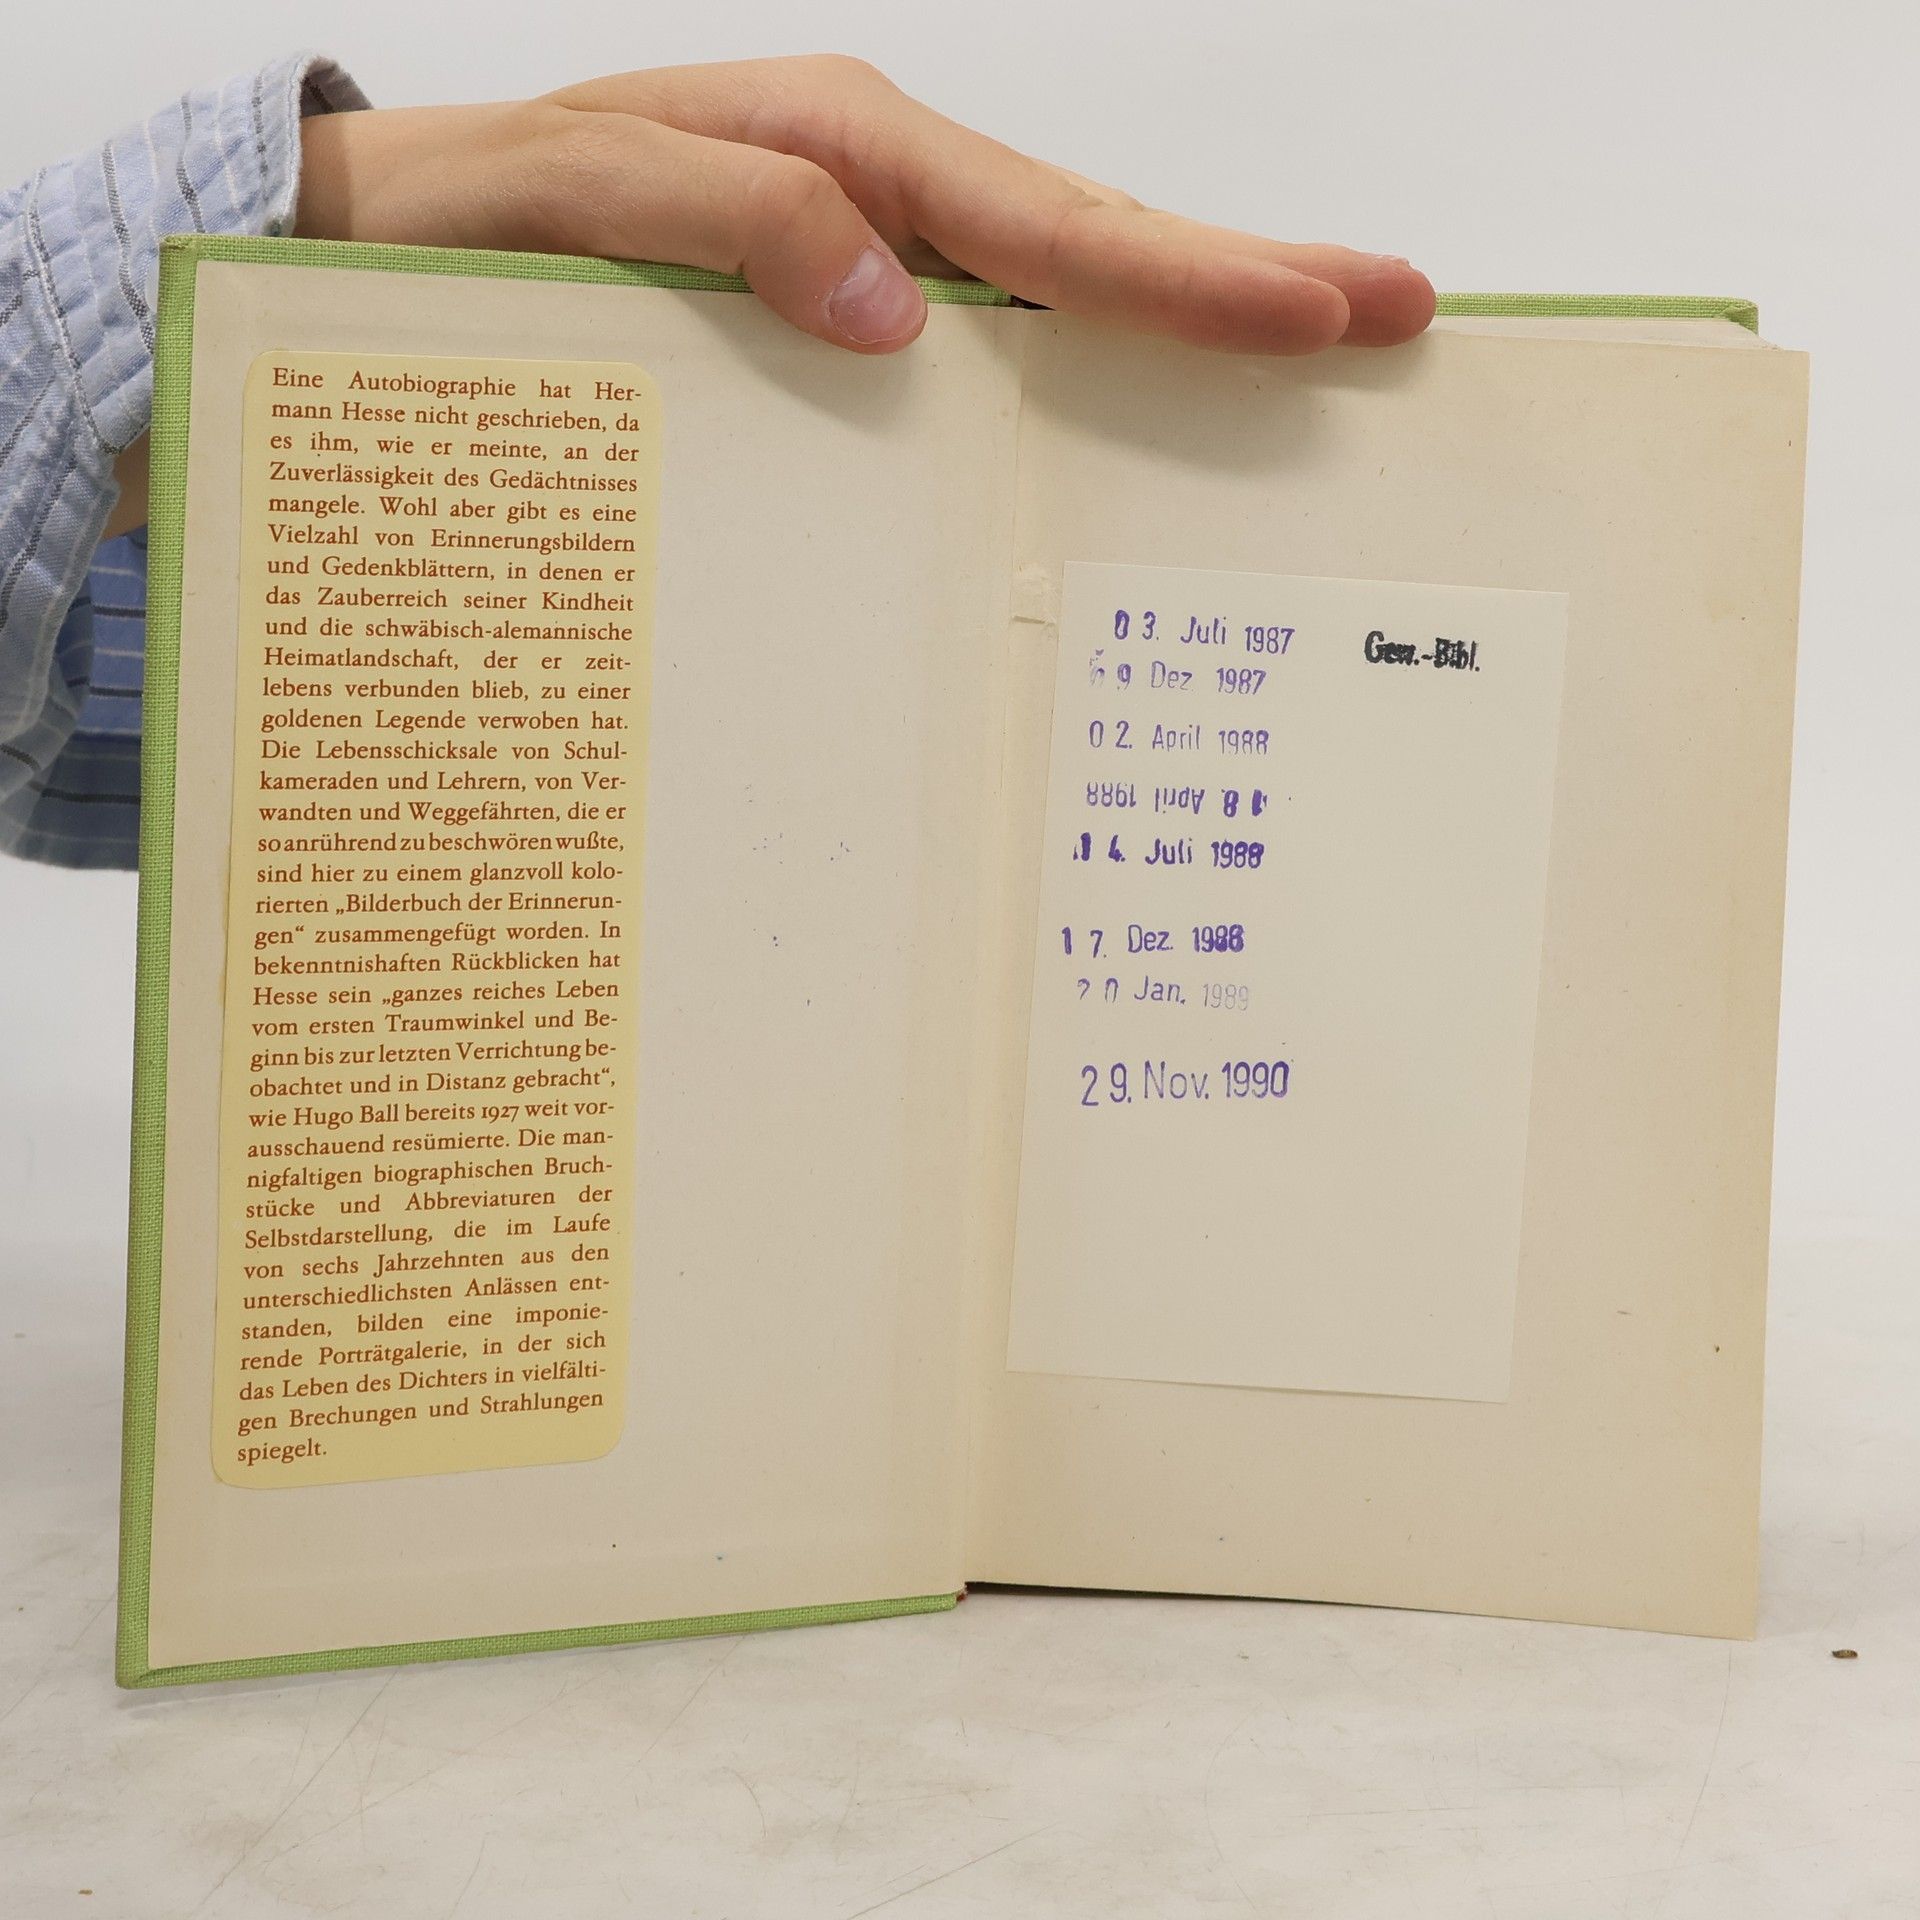 Eine Autobiographie hat Her-
mann Hesse nicht geschrieben, da
es ihm, wie er meinte, an der
Zuverlässigkeit des Gedächtnisses
mangele. Wohl aber gibt es eine
Vielzahl von Erinnerungsbildern
und Gedenkblättern, in denen er
das Zauberreich seiner Kindheit
und die schwäbisch-alemannische
Heimatlandschaft, der er zeit-
lebens verbunden blieb, zu einer
goldenen Legende verwoben hat.
Die Lebensschicksale von Schul-
kameraden und Lehrern, von Ver-
wandten und Weggefährten, die er
so anrührend zu beschwören wußte,
sind hier zu einem glanzvoll kolo-
rierten „Bilderbuch der Erinnerun-
gen“ zusammengefügt worden. In
bekenntnishaften Rückblicken hat
Hesse sein „ganzes reiches Leben
vom ersten Traumwinkel und Be-
ginn bis zur letzten Verrichtung be-
obachtet und in Distanz gebracht“,
wie Hugo Ball bereits 1927 weit vor-
ausschauend resümierte. Die man-
nigfaltigen biographischen Bruch-
stücke und Abbreviaturen der
Selbstdarstellung, die im Laufe
von sechs Jahrzehnten aus den
unterschiedlichsten Anlässen ent-
standen, bilden eine imponie-
rende Porträtgalerie, in der sich
das Leben des Dichters in vielfälti-
gen Brechungen und Strahlungen
spiegelt.
03. Juli 1987
Gew.-Bibl.
9 Dez 1987
02. April 1988
18. April 1988
4. Juli 1988
17. Dez. 1988
20 Jan. 1989
29. Nov. 1990